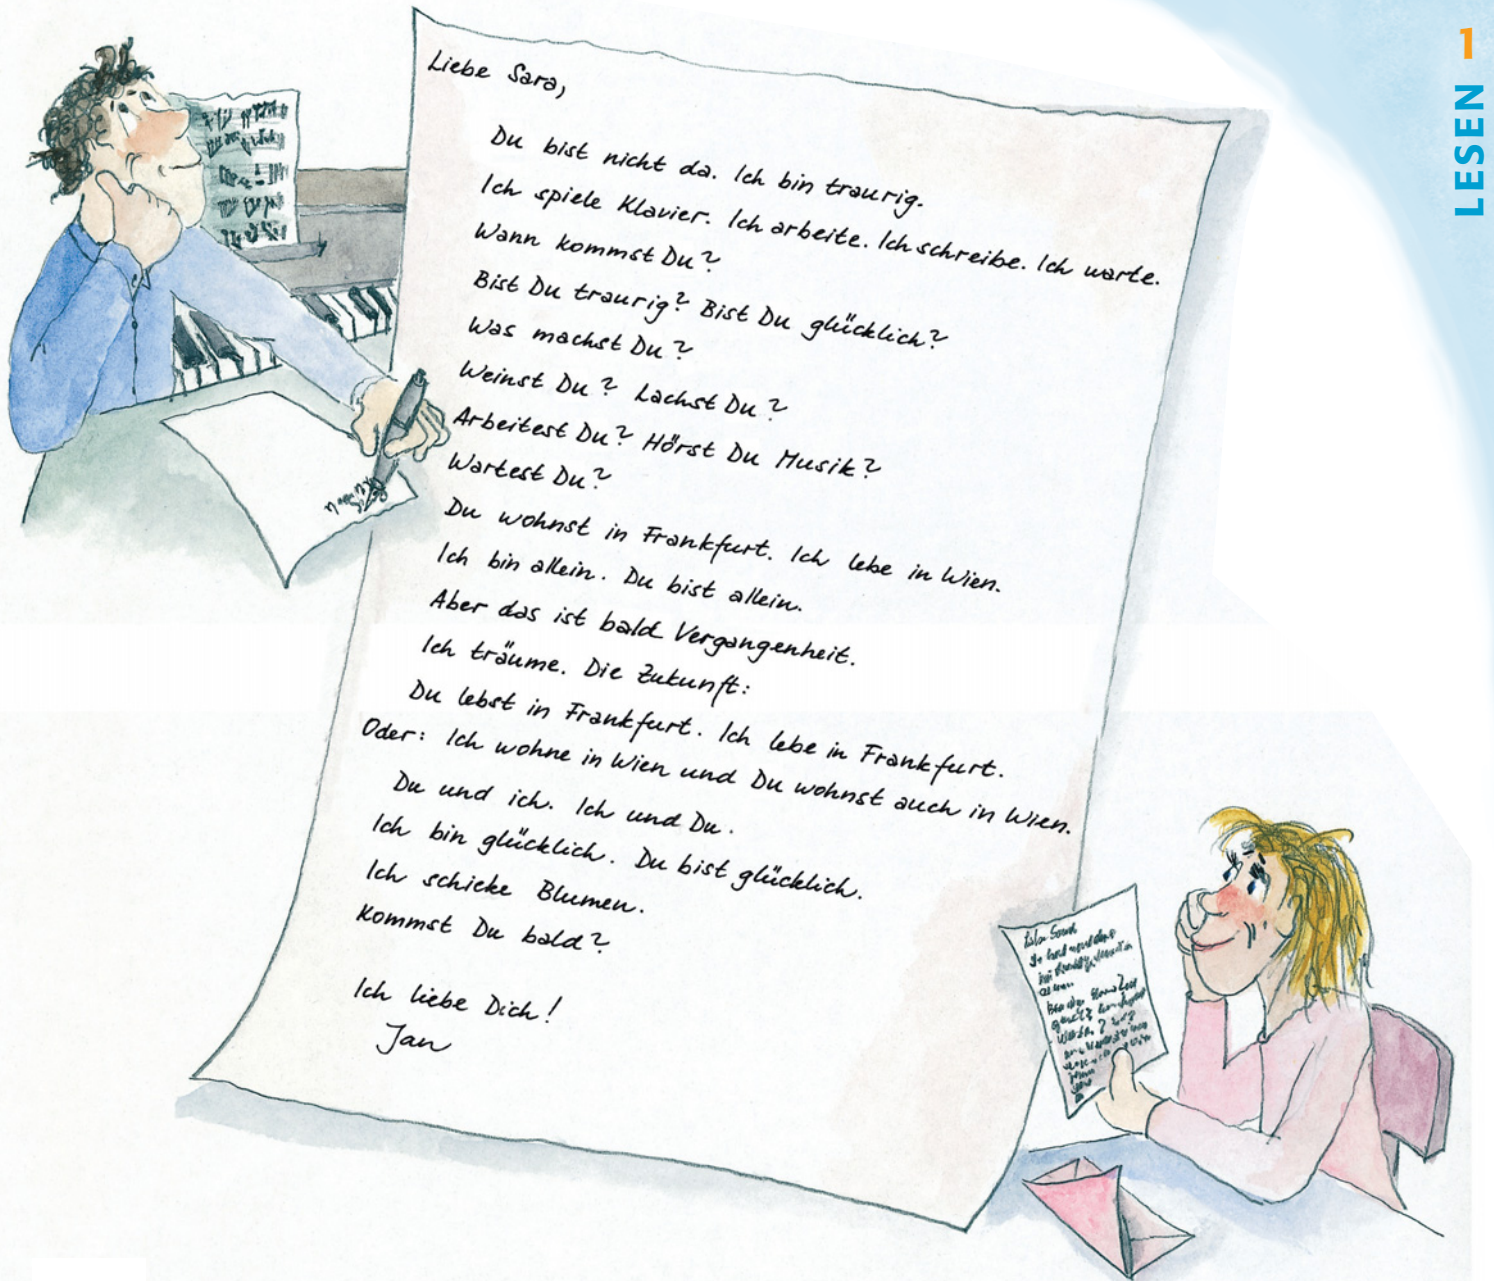 LESEN 1
Liebe Sara,
Du bist nicht da. Ich bin traurig.
Ich spiele Klavier. Ich arbeite. Ich schreibe. Ich warte.
Wann kommst Du?
Bist Du traurig? Bist Du glücklich?
Was machst Du?
Weinst Du? Lachst Du?
Arbeitest Du? Hörst Du Musik?
Wartest Du?
Du wohnst in Frankfurt. Ich lebe in Wien.
Ich bin allein. Du bist allein.
Aber das ist bald Vergangenheit.
Ich träume. Die Zukunft:
Du lebst in Frankfurt. Ich lebe in Frankfurt.
Oder: Ich wohne in Wien und Du wohnst auch in Wien.
Du und ich. Ich und Du.
Ich bin glücklich. Du bist glücklich.
Ich schicke Blumen.
Kommst Du bald?
Ich liebe Dich!
Jan